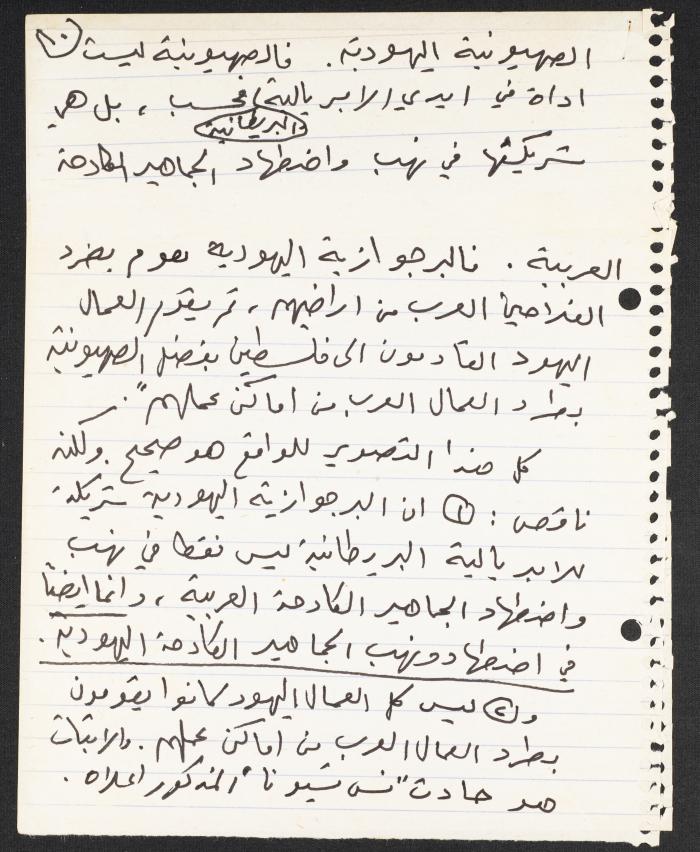 ١٠)
الصهيونية اليهودية. فالصهيونية ليست
اداة في ايدي الامبريالية فحسب ، بل هي
والبريطانية
شريكتها في نهب واضطهاد الجماهير الكادحة
العربية . فالبرجوازية اليهودية تقوم بطرد
الفلاحين العرب من اراضيهم ، ثم يقوم العمال
اليهود القادمون الى فلسطين بفضل الصهيونية
بطرد العمال العرب من اماكن عملهم".
كل هذا التصوير للواقع هو صحيح ولكنه
ناقص : ① ان البرجوازية اليهودية شريكة
للامبريالية البريطانية ليس فقط في نهب
واضطهاد الجماهير الكادحة العربية ، وانما ايضاً
في اضطهاد ونهب الجماهير الكادحة اليهودية .
و② ليس كل العمال اليهود كانوا يقومون
بطرد العمال العرب من اماكن عملهم . والاثبات
هو حادث "نس تسيونا" المذكور اعلاه .